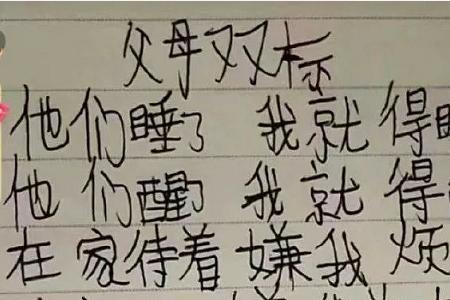 父母双标
他们睡了 我就得睡
他们醒了 我就得
在家待着嫌我烦